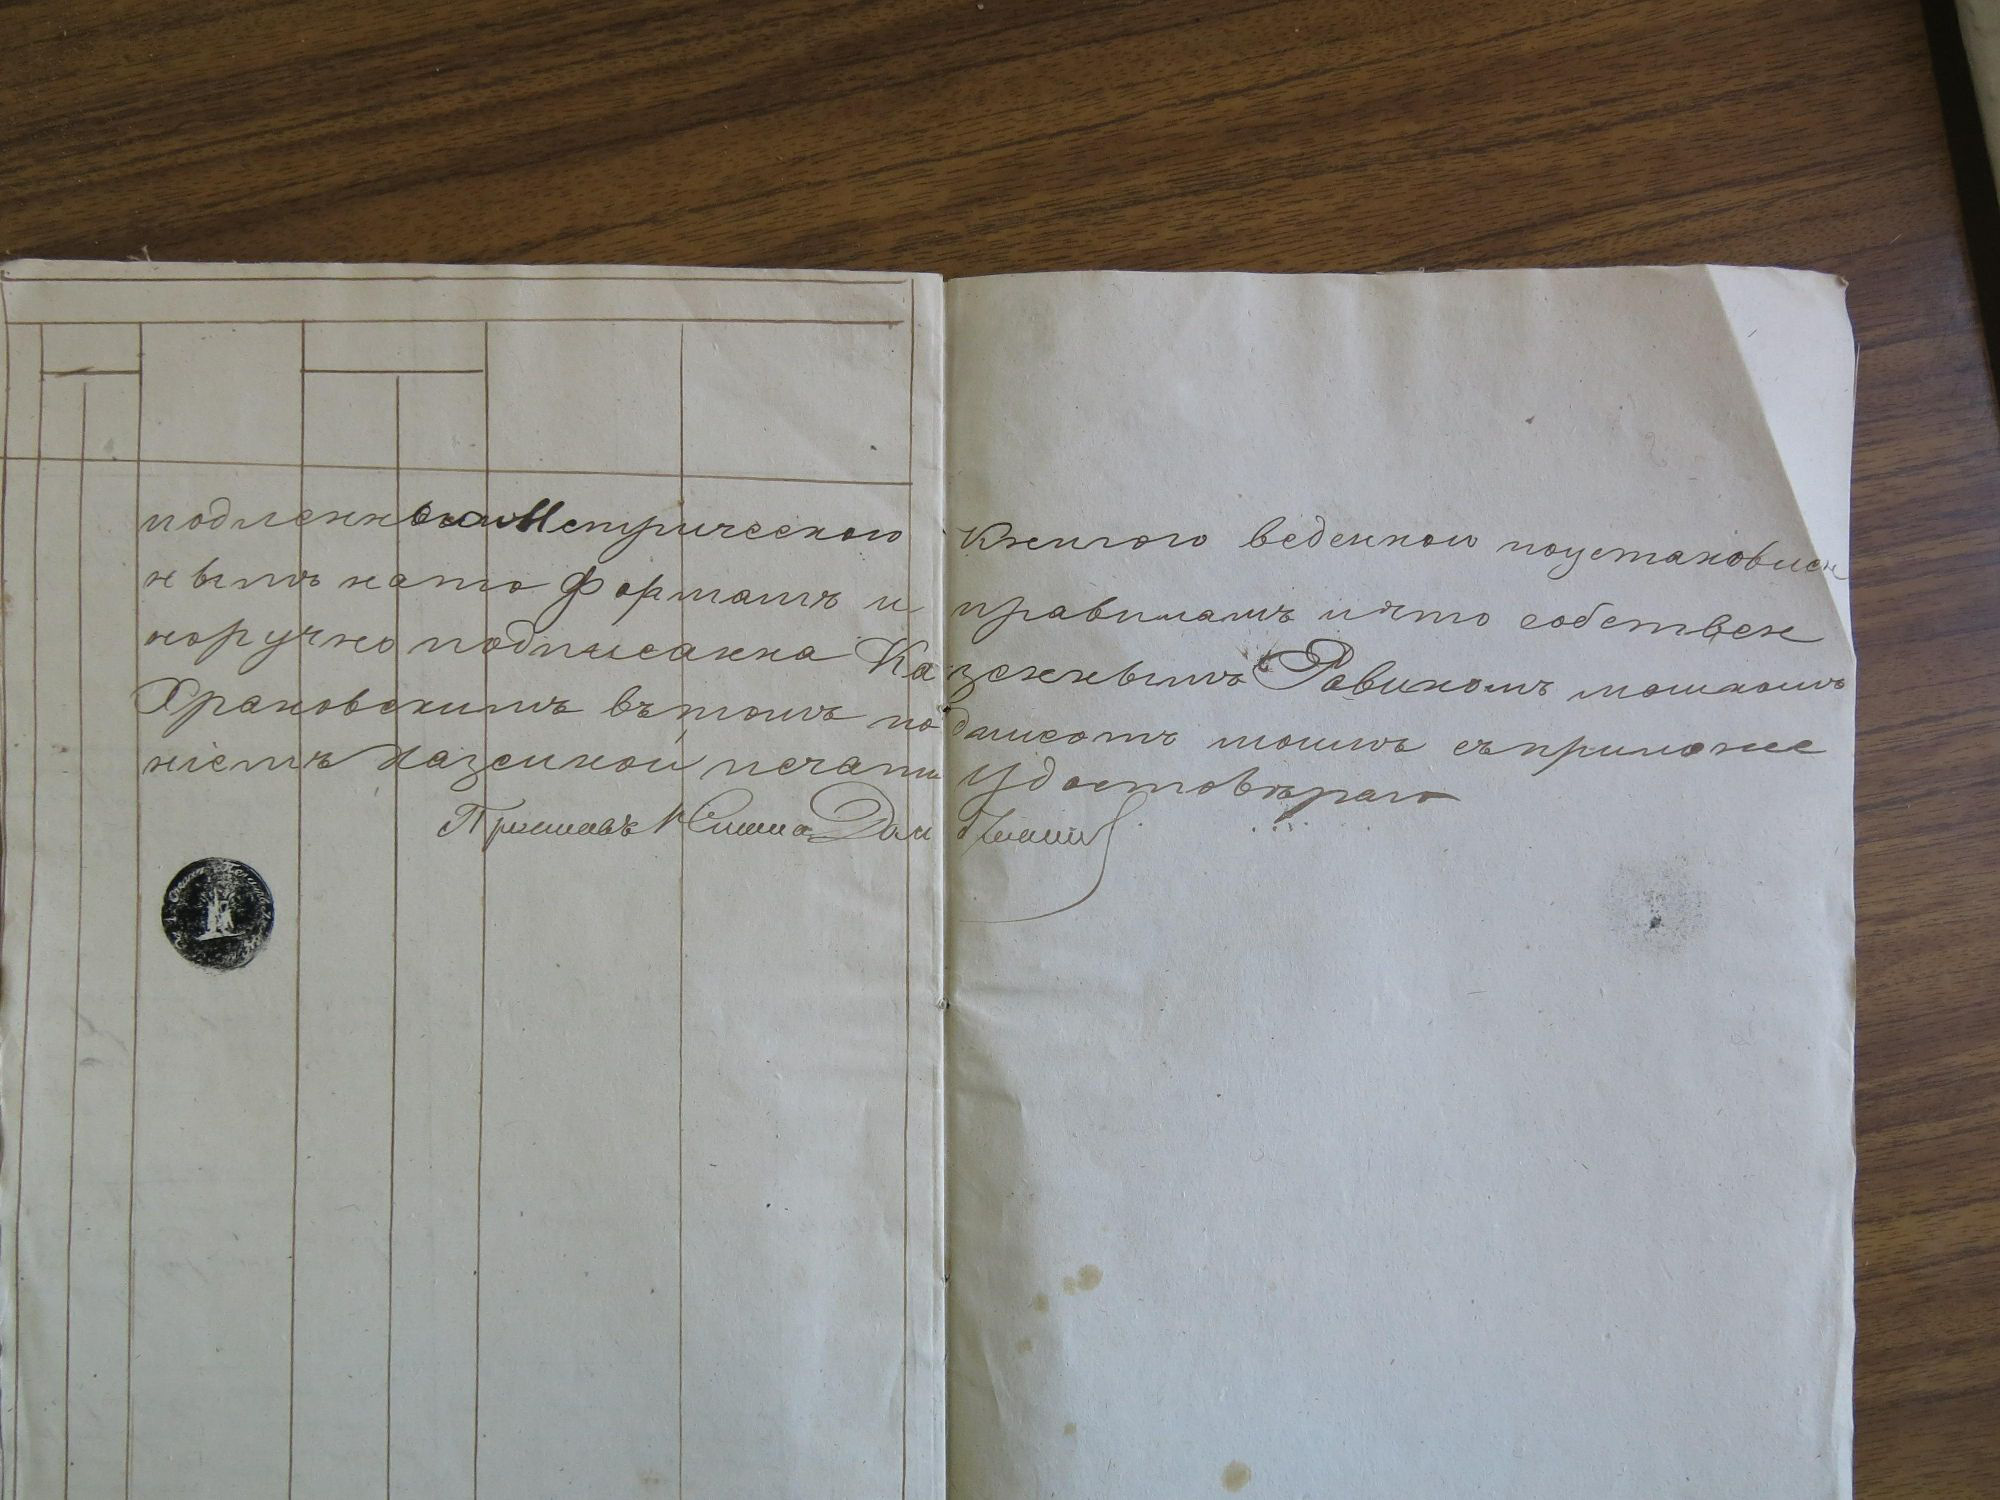 подленною Метрическою Книгою веденною поустановлен
нымъ нато формамъ и правиламъ ичто собствен
норучно подписанна Казеннымъ Равиномъ мошкомъ
Храновскимъ вътомъ подписомъ моимъ съприложе
ніемъ казенной печати Удостовѣраю